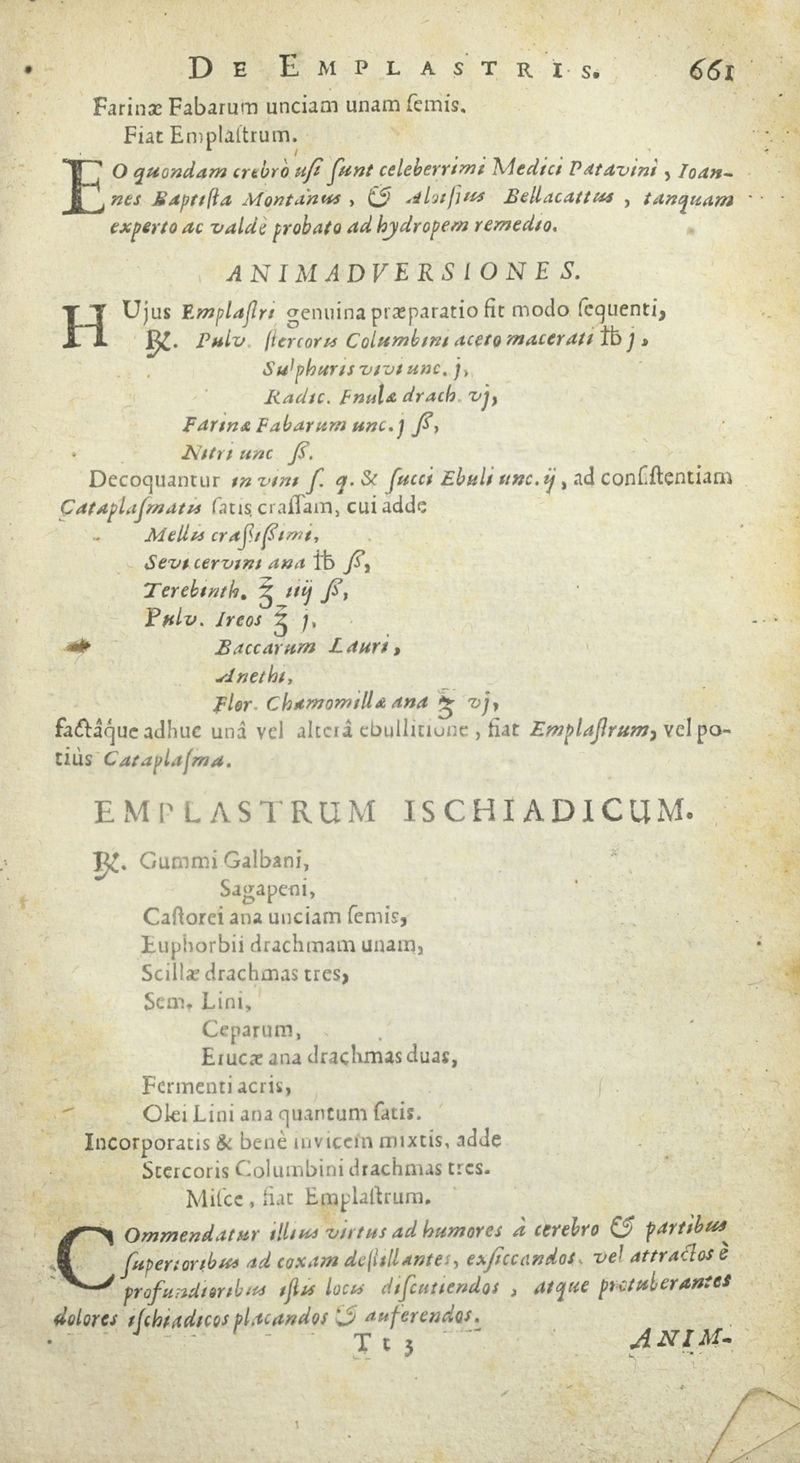 DE EMPLASTRIS. 661
Farinæ Fabarum unciam unam ſemis.
Fiat Emplaſtrum.
EO quondam crebrò uſi ſunt celeberrimi Medici Patavini, Ioan-
nes Baptiſta Montanus, & Aloiſius Bellacattus, tanquam
experto ac valdè probato ad hydropem remedio.
ANIMADVERSIONES.
HUjus Emplaſtri genuina præparatio fit modo ſequenti,
℞. Pulv. ſtercoris Columbini aceto macerati ℔ j,
Sulphuris vivi unc. j,
Radic. Enulæ drach. vj,
Farinæ Fabarum unc. j ß,
Nitri unc ß.
Decoquantur in vini ſ. q. & ſucci Ebuli unc. ij, ad conſiſtentiam
Cataplaſmatis ſatis craſſam, cui adde
Mellis craſſiſſimi,
Sevi cervini ana ℔ ß,
Terebinth. ℥ iiij ß,
Pulv. Ireos ℥ j,
Baccarum Lauri,
Anethi,
Flor. Chamomillæ ana ʒ vj,
factâque adhuc unâ vel alterâ ebullitione, fiat Emplaſtrum, vel po-
tiùs Cataplaſma.
EMPLASTRUM ISCHIADICUM.
℞. Gummi Galbani,
Sagapeni,
Caſtorei ana unciam ſemis,
Euphorbii drachmam unam,
Scillæ drachmas tres,
Sem. Lini,
Ceparum,
Erucæ ana drachmas duas,
Fermenti acris,
Olei Lini ana quantum ſatis.
Incorporatis & benè invicem mixtis, adde
Stercoris Columbini drachmas tres.
Miſce, fiat Emplaſtrum.
COmmendatur illius virtus ad humores à cerebro & partibus
ſuperioribus ad coxam deſtillantes, exſiccandos, vel attractos è
profundioribus iſtis locis diſcutiendos, atque protuberantes
dolores iſchiadicos placandos & auferendos.
Tt 3 ANIM-